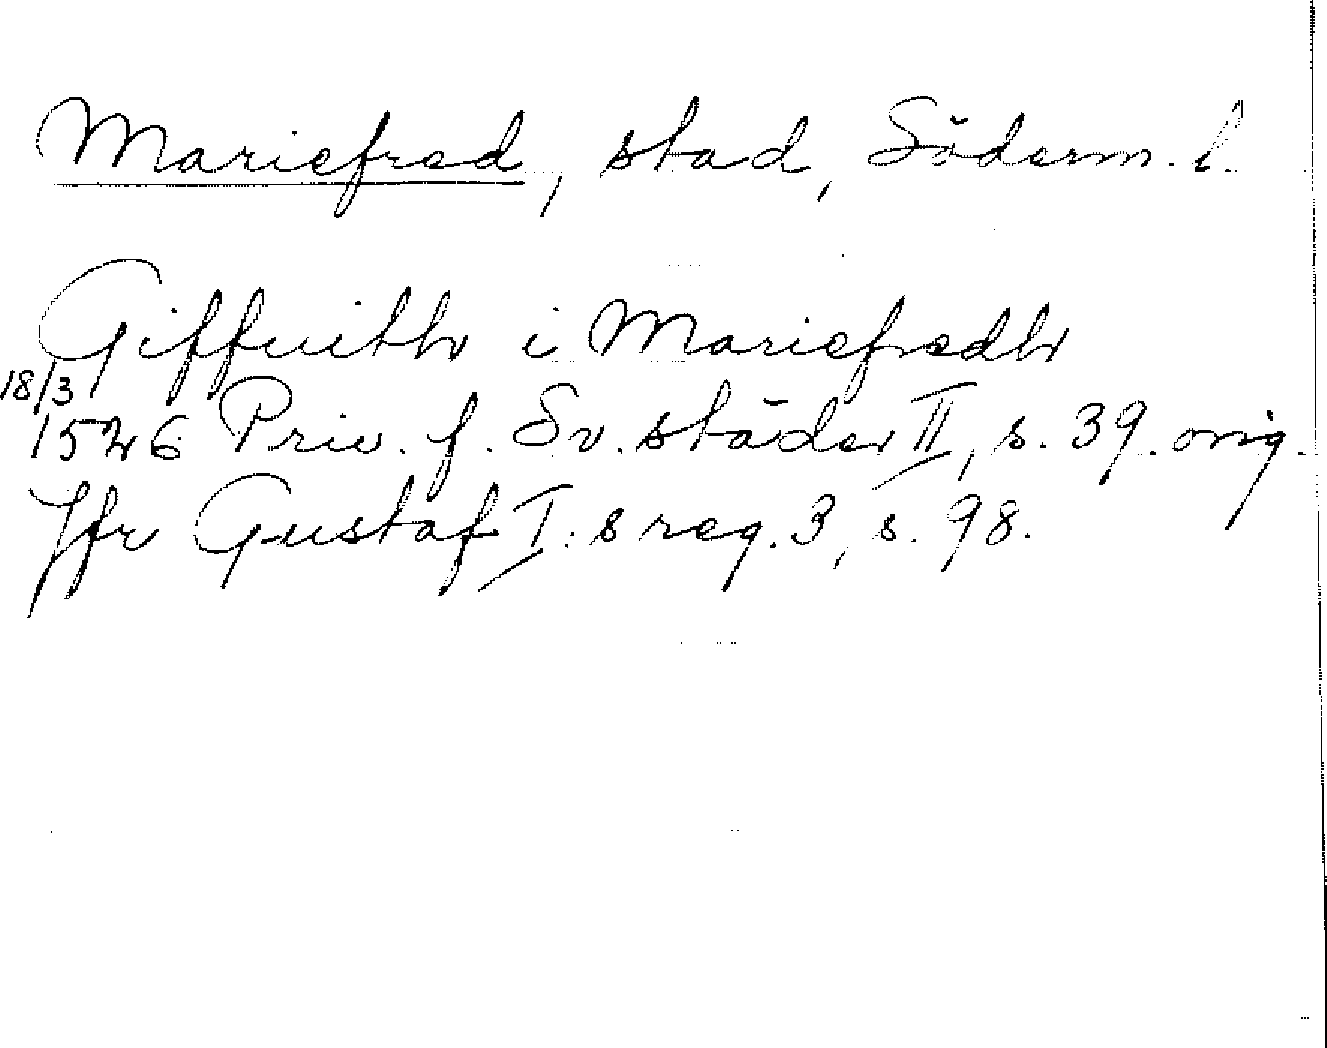 Mariefred, stad, Söderm. l.
Giffuith i Mariefredh
18/3
1526 Priv. f. Sv. städer II, s. 39. orig.
Jfr Gustaf I:s reg. 3, s. 98.